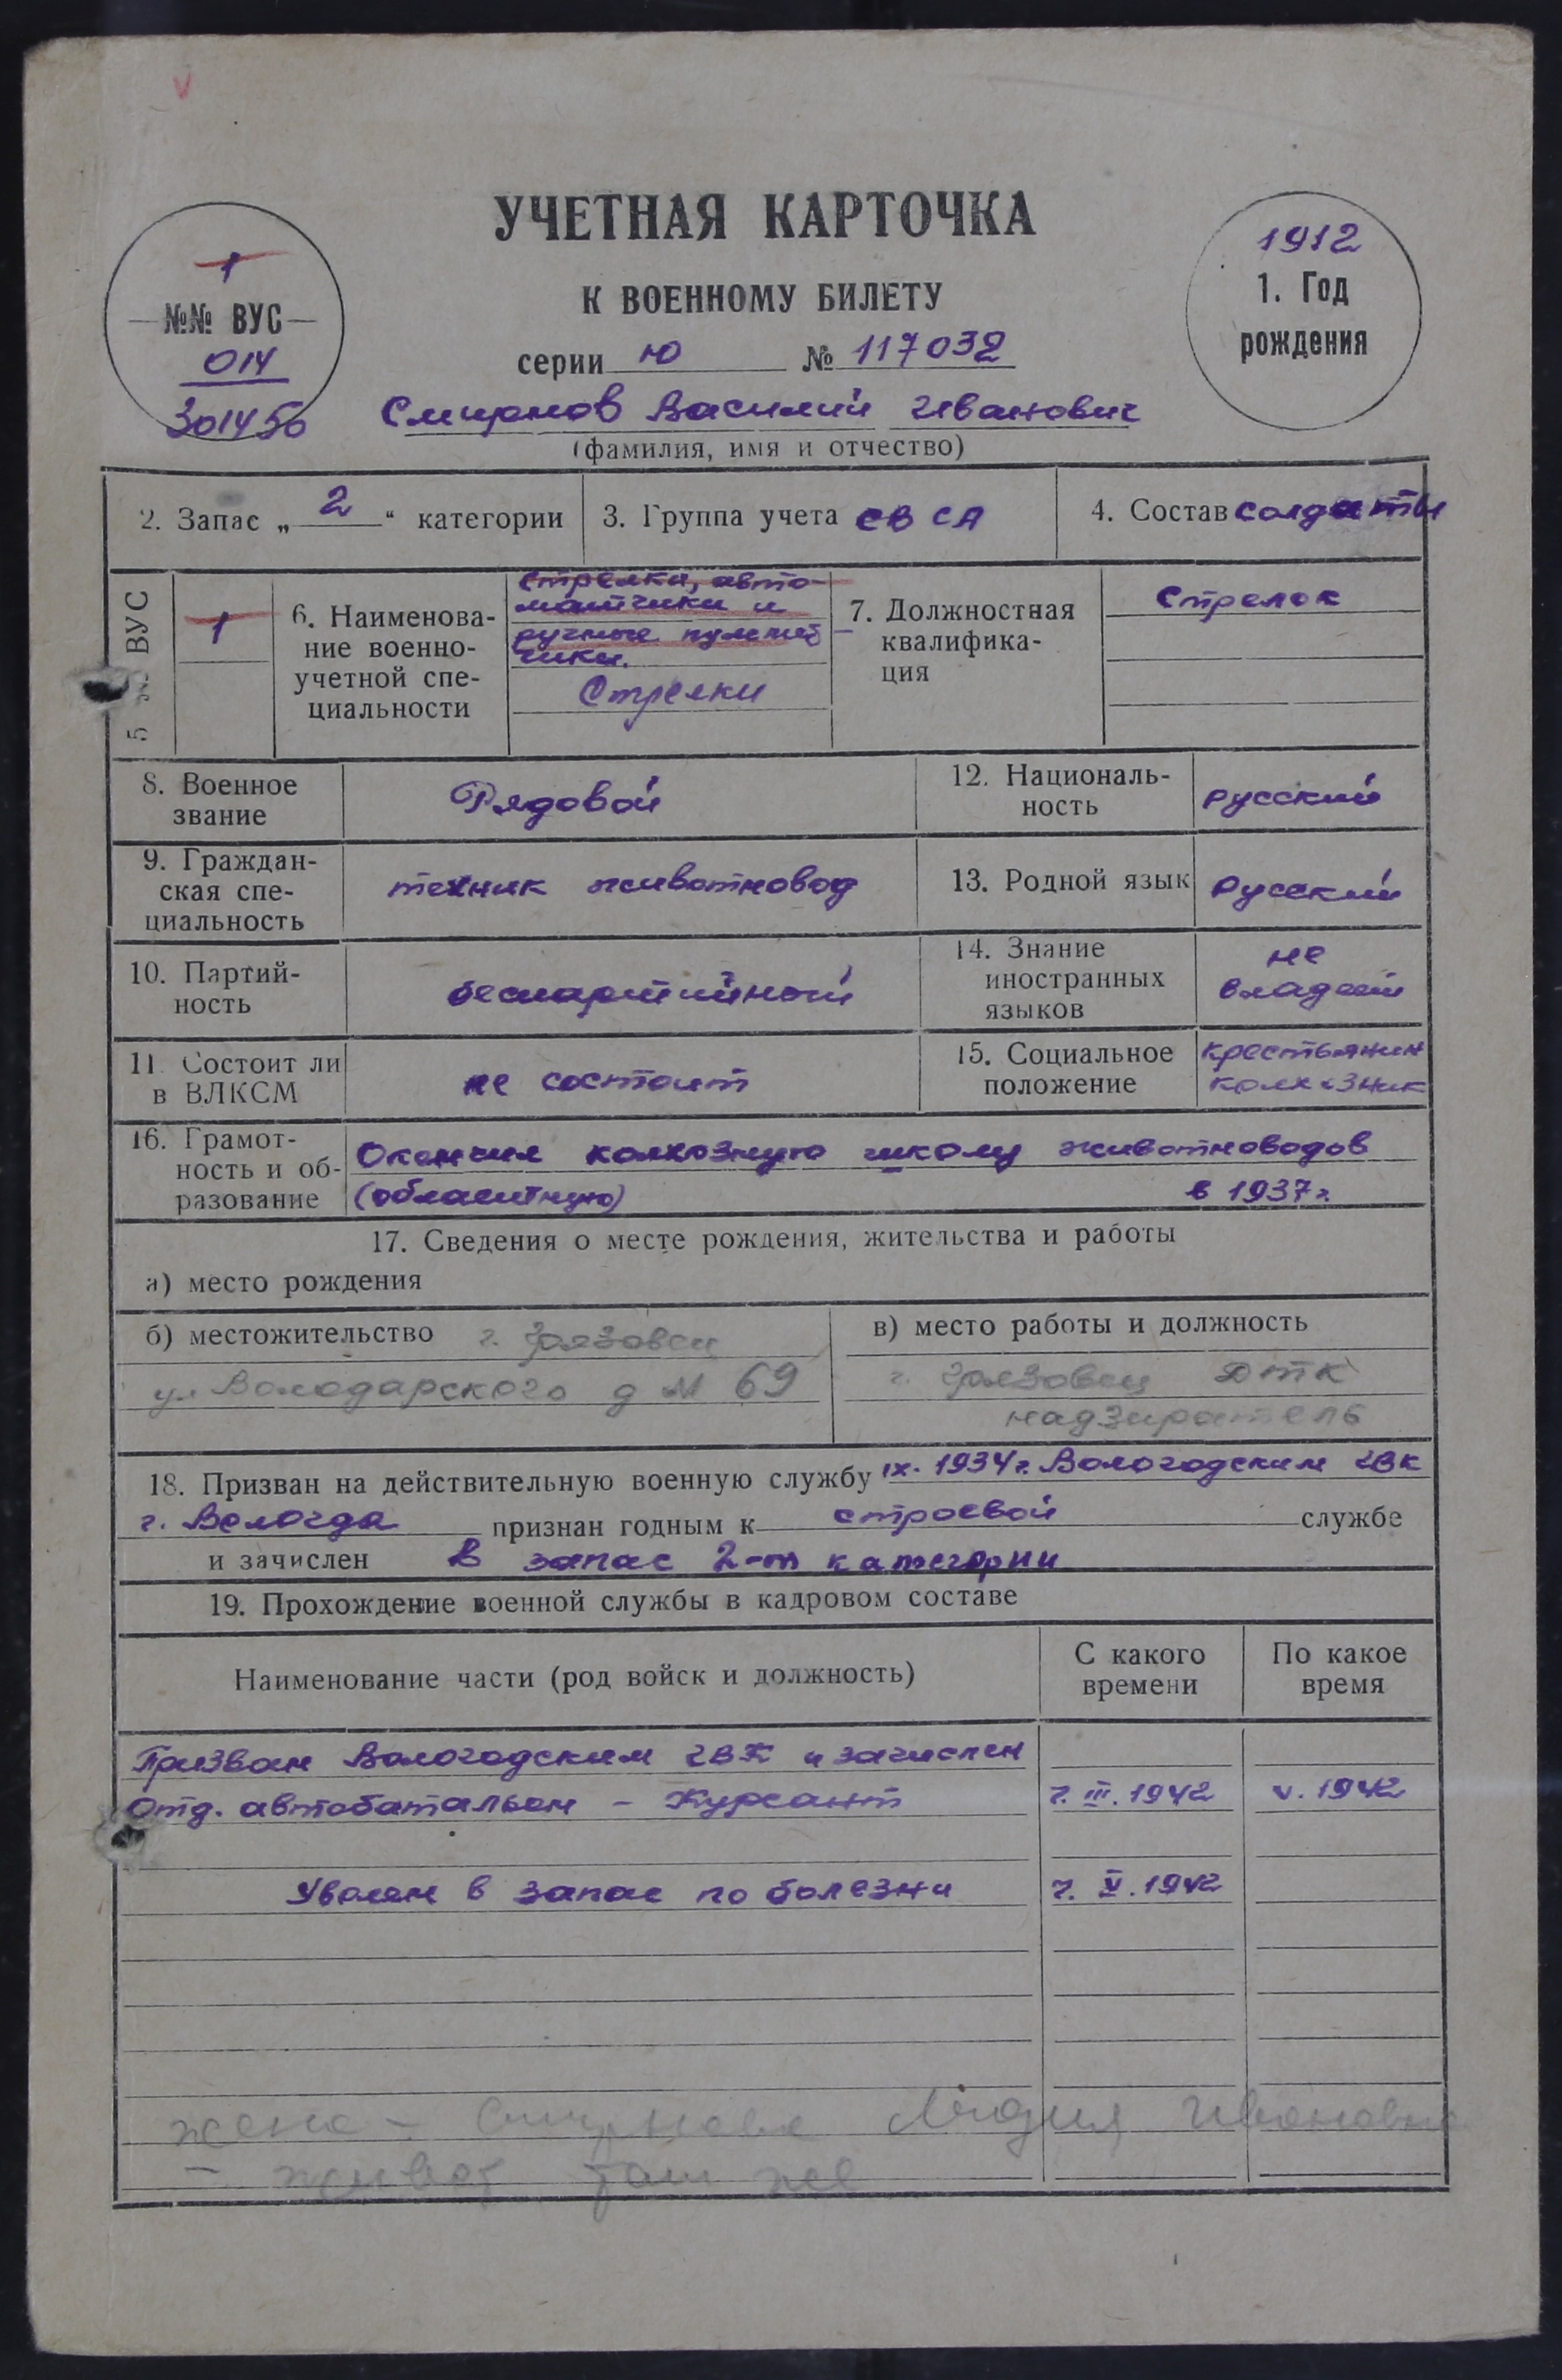 УЧЕТНАЯ КАРТОЧКА
К ВОЕННОМУ БИЛЕТУ
серии Ю № 117032
1
№№ ВУС
014
301450
1912
1. Год
рождения
Смирнов Василий Иванович
(фамилия, имя и отчество)
2. Запас „ 2 “ категории
3. Группа учета СВ СА
4. Состав солдаты
5 №№ ВУС
1
6. Наименова-
ние военно-
учетной спе-
циальности
Стрелки, авто-
матчики и
ручные пулемет-
чики.
Стрелки
7. Должностная
квалифика-
ция
Стрелок
8. Военное
звание
Рядовой
12. Националь-
ность
русский
9. Граждан-
ская спе-
циальность
техник животновод
13. Родной язык
русский
10. Партий-
ность
беспартийный
14. Знание
иностранных
языков
не
владеет
11. Состоит ли
в ВЛКСМ
не состоит
15. Социальное
положение
крестьянин
колхозник
16. Грамот-
ность и об-
разование
Окончил колхозную школу животноводов
(областную) в 1937 г.
17. Сведения о месте рождения, жительства и работы
а) место рождения
б) местожительство г. Грязовец
ул Володарского д № 69
в) место работы и должность
г. Грязовец ДТК
надзиратель
18. Призван на действительную военную службу IX. 1934 г. Вологодским ГВК
г. Вологда признан годным к строевой службе
и зачислен В запас 2-й категории
19. Прохождение военной службы в кадровом составе
Наименование части (род войск и должность)
С какого
времени
По какое
время
Призван Вологодским ГВК и зачислен
Отд. автобатальон – Курсант г. III. 1942 V. 1942
Уволен в запас по болезни г. V. 1942
жена – Смирнова Лидия Ивановна
– живет там же